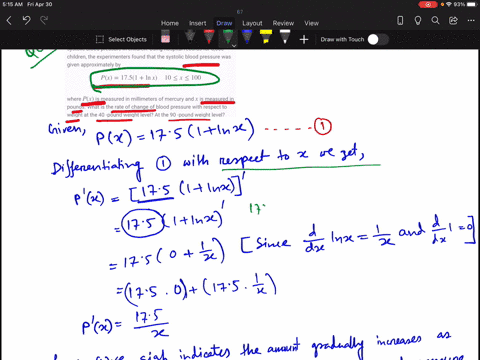 5:15 AM Fri Apr 30
93%
87
Home Insert Draw Layout Review View
Select Objects
Draw with Touch
children, the experimenters found that the systolic blood pressure was
given approximately by
P(x) = 17.5(1 + ln x) 10 ≤ x ≤ 100
where P(x) is measured in millimeters of mercury and x is measured in
pounds. What is the rate of change of blood pressure with respect to
weight at the 40-pound weight level? At the 90-pound weight level?
Given, P(x) = 17.5 (1+lnx) ------ ①
Differentiating ① with respect to x we get,
P'(x) = [17.5 (1+lnx)]'
= 17.5 (1+lnx)' 17.
= 17.5 (0 + 1/x) [Since d/dx lnx = 1/x and d/dx 1 = 0]
= (17.5 . 0) + (17.5 . 1/x)
P'(x) = 17.5/x
sign indicates the amount gradually increases as